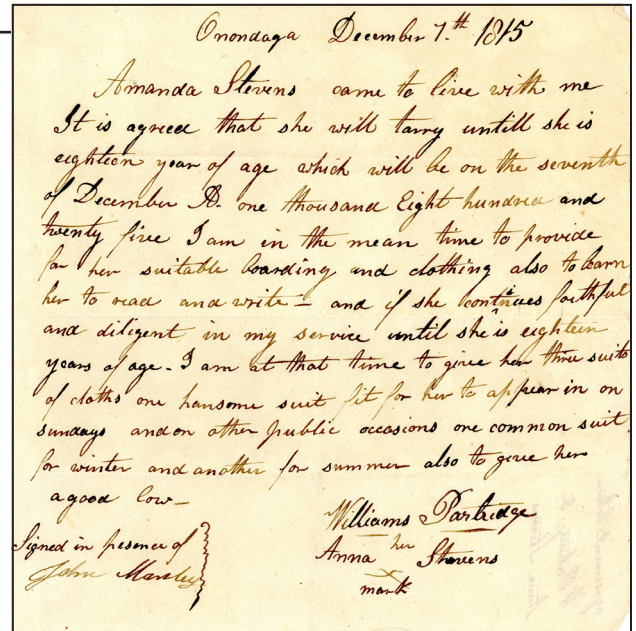 Onondaga December 7.th 1815
Amanda Stevens came to live with me
It is agreed that she will tarry untill she is
eighteen year of age which will be on the seventh
of December AD. one thousand Eight hundred and
twenty five I am in the mean time to provide
for her suitable boarding and clothing also to learn
her to read and write – and if she continues faithful
and diligent in my service until she is eighteen
years of age – I am at that time to give her three suits
of cloths one hansome suit fit for her to appear in on
sundays and on other public occasions one common suit
for winter and another for summer also to give her
a good cow –
Williams Partridge
Signed in presence of
John
Anna her Stevens
mark